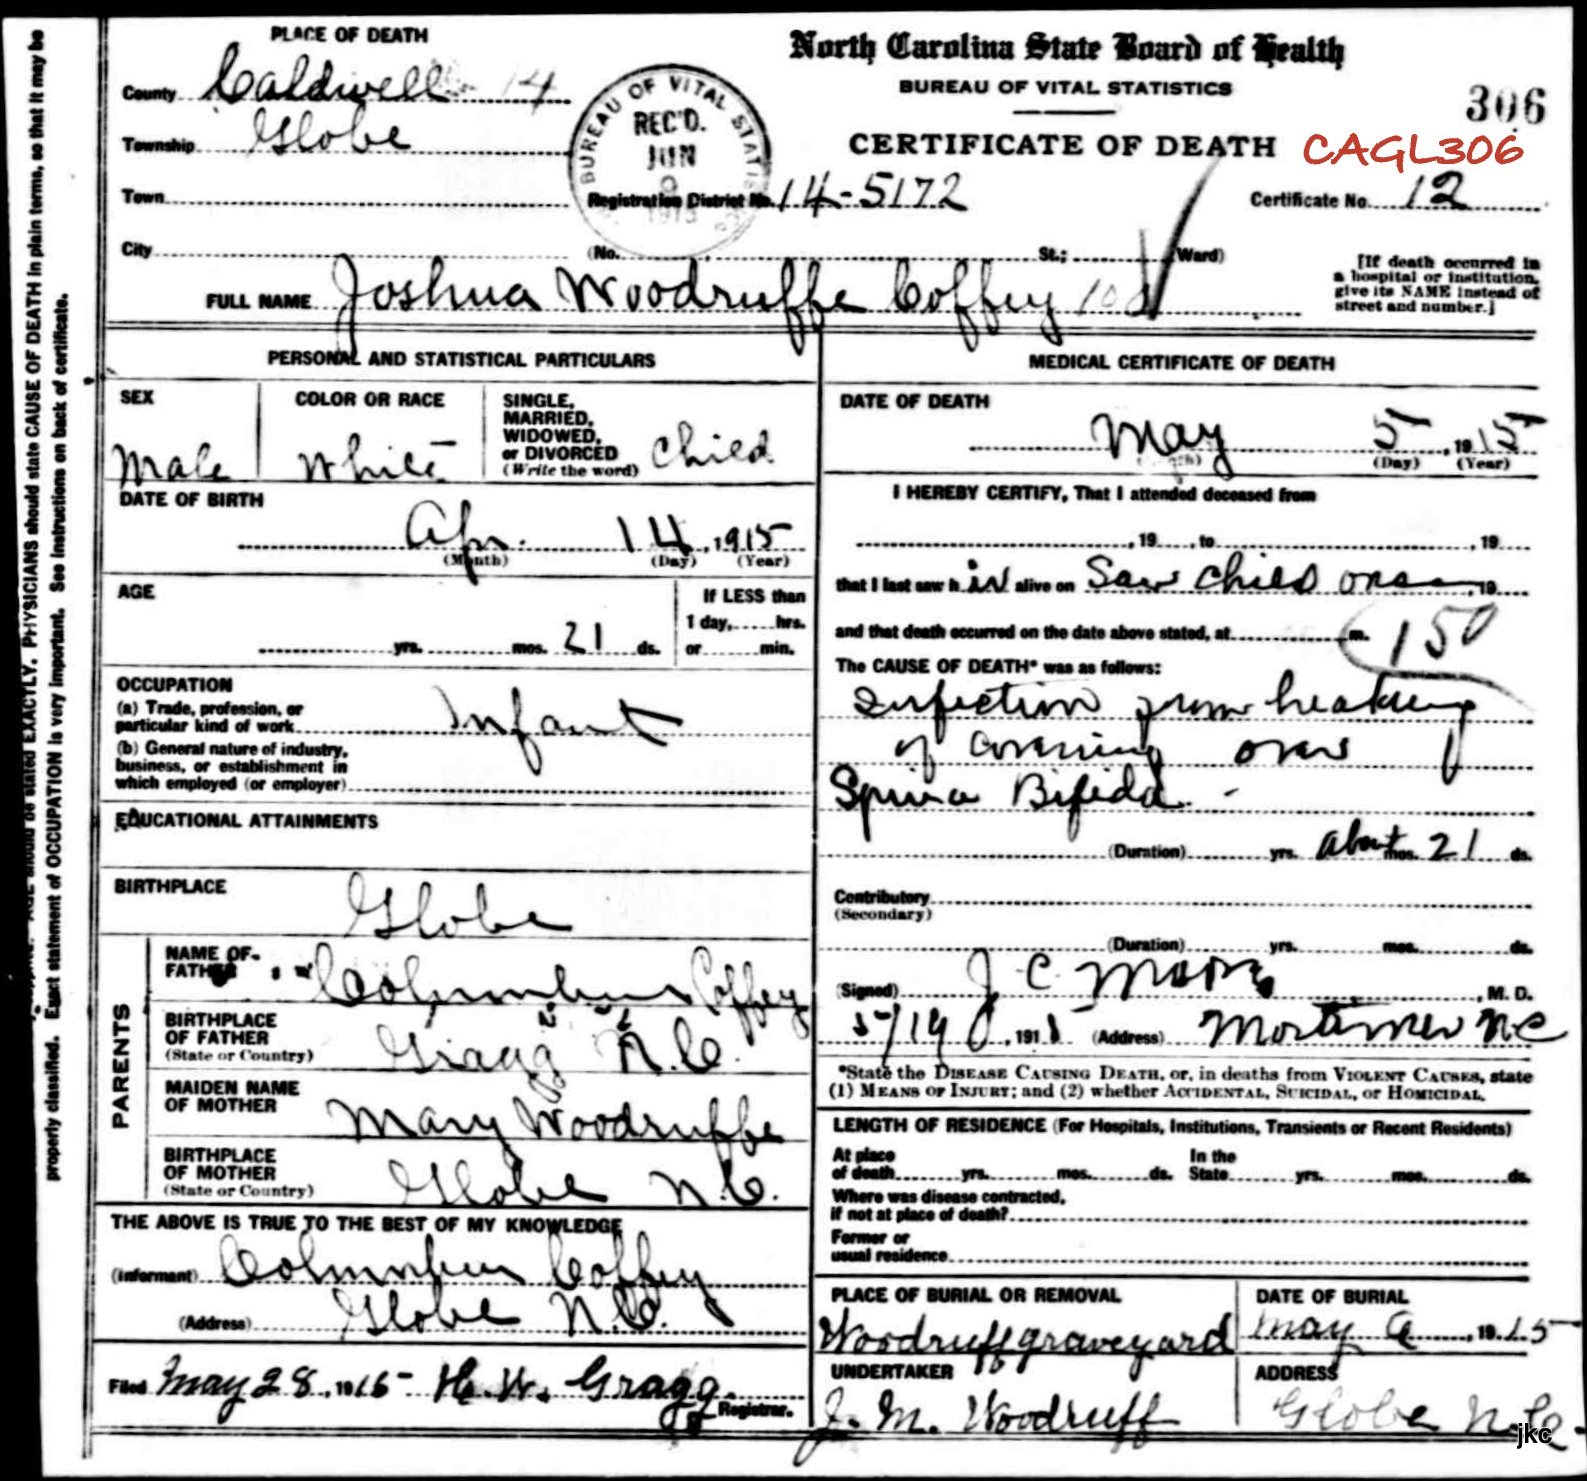 PLACE OF DEATH
County Caldwell 14
Township Globe
Town
City
North Carolina State Board of Health
BUREAU OF VITAL STATISTICS
CERTIFICATE OF DEATH
306
CAGL306
BUREAU OF VITAL STATIS
REC'D.
JUN
9
1915
Registration District No. 14-5172
Certificate No. 12
(No. St.; Ward)
[If death occurred in
a hospital or institution,
give its NAME instead of
street and number.]
FULL NAME Joshua Woodruffe Coffey
PERSONAL AND STATISTICAL PARTICULARS
SEX
Male
COLOR OR RACE
White
SINGLE,
MARRIED,
WIDOWED,
or DIVORCED
(Write the word)
Child
DATE OF BIRTH
Apr. 14, 1915
(Month) (Day) (Year)
AGE
yrs. mos. 21 ds.
If LESS than
1 day, hrs.
or min.
OCCUPATION
(a) Trade, profession, or
particular kind of work Infant
(b) General nature of industry,
business, or establishment in
which employed (or employer)
EDUCATIONAL ATTAINMENTS
BIRTHPLACE
Globe
PARENTS
NAME OF
FATHER
Columbus Coffey
BIRTHPLACE
OF FATHER
(State or Country)
Gragg N.C.
MAIDEN NAME
OF MOTHER
Mary Woodruffe
BIRTHPLACE
OF MOTHER
(State or Country)
Globe N.C.
THE ABOVE IS TRUE TO THE BEST OF MY KNOWLEDGE
(Informant) Columbus Coffey
(Address) Globe N.C.
Filed May 28, 1915 H. W. Gragg
Registrar.
MEDICAL CERTIFICATE OF DEATH
DATE OF DEATH
May 5, 1915
(Day) (Year)
I HEREBY CERTIFY, That I attended deceased from
, 19 , to , 19
that I last saw h im alive on Saw child once , 19
and that death occurred on the date above stated, at m.
150
The CAUSE OF DEATH* was as follows:
Infection from breaking
of covering over
Spina Bifida -
(Duration) yrs. about mos. 21 ds.
Contributory
(Secondary)
(Duration) yrs. mos. ds.
(Signed) J C Moore, M. D.
5/19, 1915 (Address) Mortimer N C
*State the DISEASE CAUSING DEATH, or, in deaths from VIOLENT CAUSES, state
(1) MEANS OF INJURY; and (2) whether ACCIDENTAL, SUICIDAL, or HOMICIDAL.
LENGTH OF RESIDENCE (For Hospitals, Institutions, Transients or Recent Residents)
At place
of death yrs. mos. ds.
In the
State yrs. mos. ds.
Where was disease contracted,
if not at place of death?
Former or
usual residence
PLACE OF BURIAL OR REMOVAL
Woodruff graveyard
DATE OF BURIAL
May 6, 1915
UNDERTAKER
J. M. Woodruff
ADDRESS
Globe N.C.
jkc
AGE should be stated EXACTLY. PHYSICIANS should state CAUSE OF DEATH in plain terms, so that it may be
properly classified. Exact statement of OCCUPATION is very important. See instructions on back of certificate.